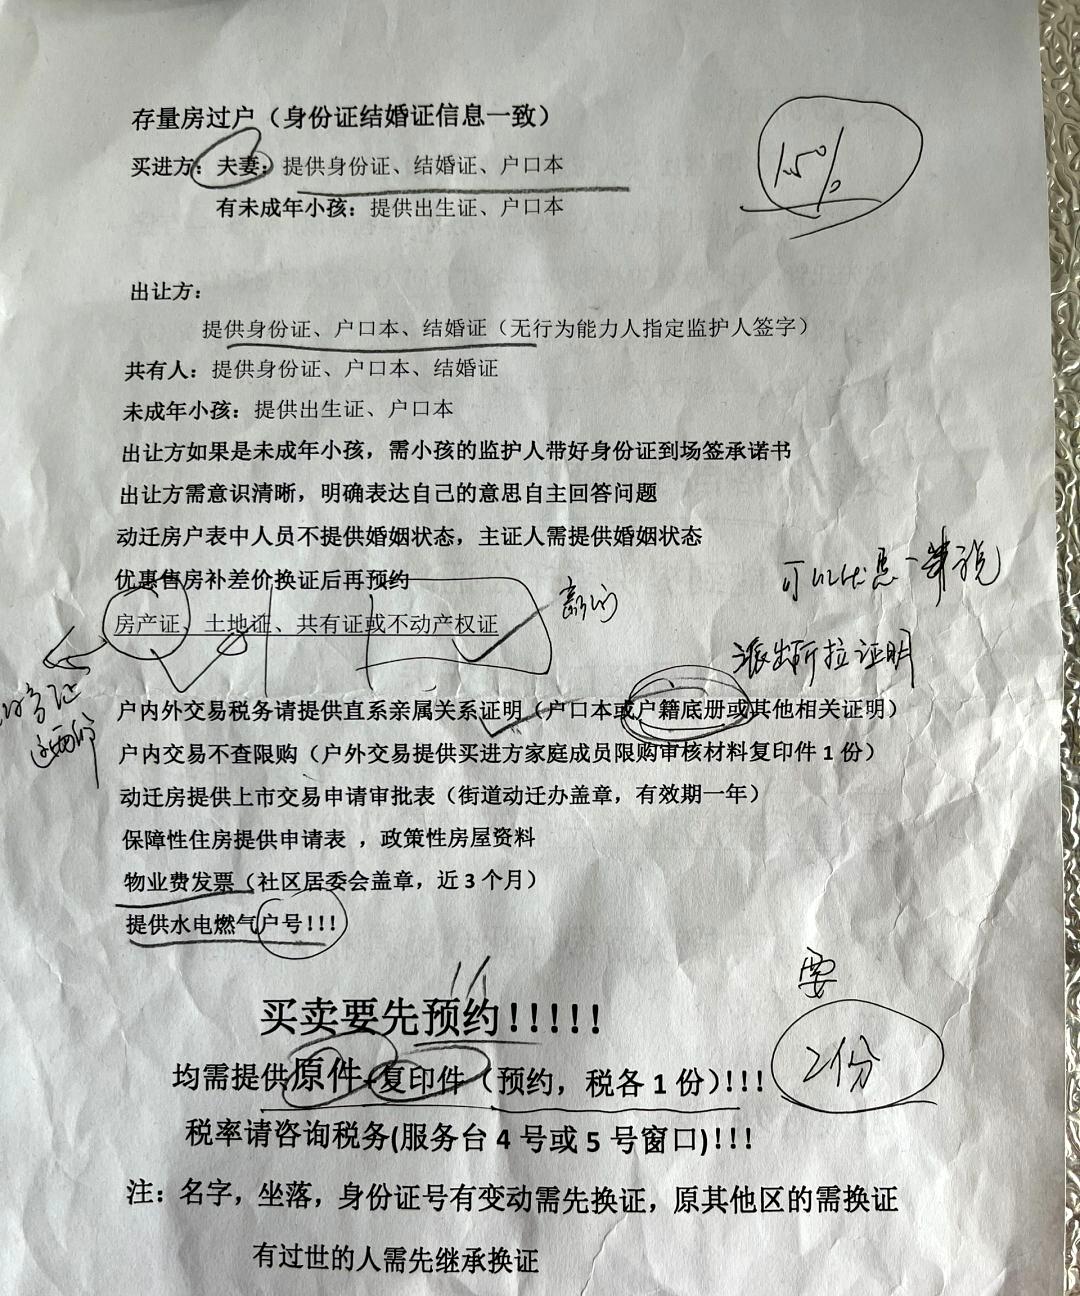 存量房过户（身份证结婚证信息一致）
1.5%
买进方：夫妻：提供身份证、结婚证、户口本
有未成年小孩：提供出生证、户口本
出让方：
提供身份证、户口本、结婚证（无行为能力人指定监护人签字）
共有人：提供身份证、户口本、结婚证
未成年小孩：提供出生证、户口本
出让方如果是未成年小孩，需小孩的监护人带好身份证到场签承诺书
出让方需意识清晰，明确表达自己的意思自主回答问题
动迁房户表中人员不提供婚姻状态，主证人需提供婚姻状态
优惠售房补差价换证后再预约
可以优惠一
房产证、土地证、共有证或不动产权证
新的
派出所拉证明
户内外交易税务请提供直系亲属关系证明（户口本或户籍底册或其他相关证明）
户内交易不查限购（户外交易提供买进方家庭成员限购审核材料复印件1份）
动迁房提供上市交易申请审批表（街道动迁办盖章，有效期一年）
保障性住房提供申请表 ，政策性房屋资料
物业费发票（社区居委会盖章，近3个月）
提供水电燃气户号!!!
买卖要先预约!!!!!
要
2份
均需提供原件+复印件（预约，税各1份）!!!
税率请咨询税务(服务台4号或5号窗口)!!!
注：名字，坐落，身份证号有变动需先换证，原其他区的需换证
有过世的人需先继承换证